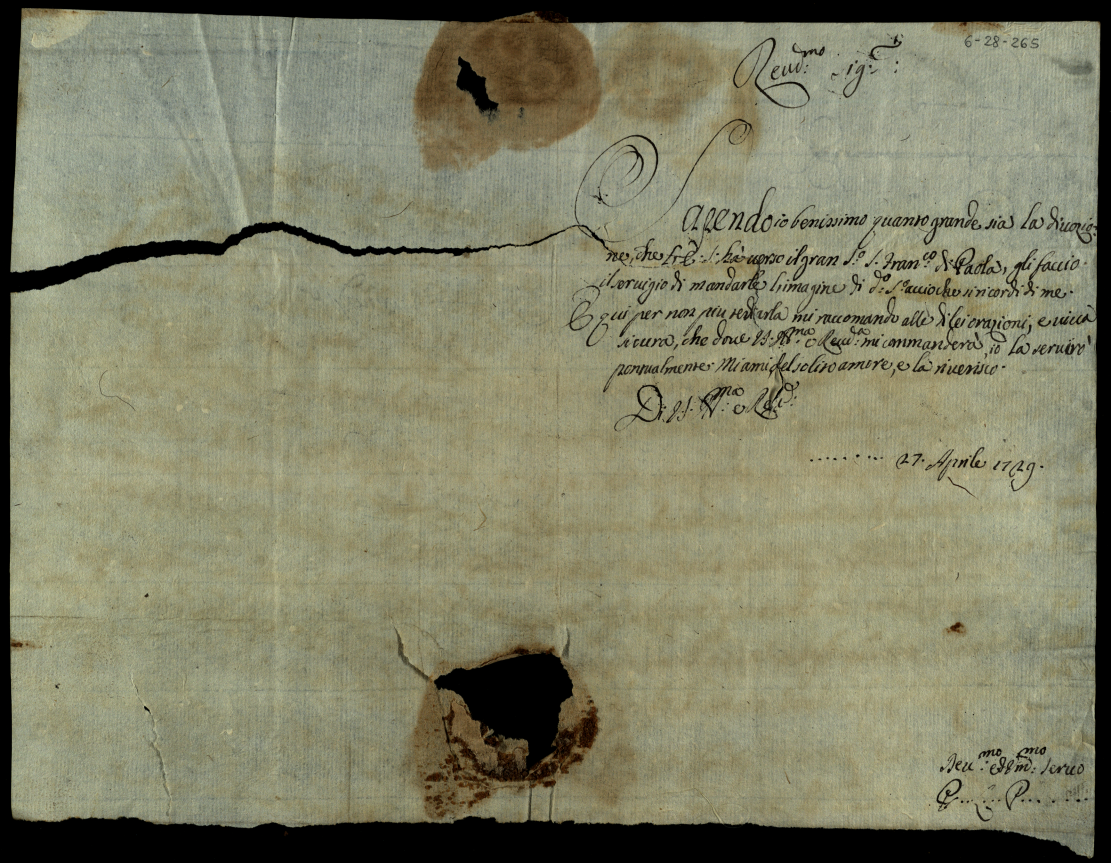 6-28-265
Reud:mo Sig:r:
Sapendo io benissimo quanto grande sia la diuozio-
ne, che S: hà uerso il gran S.o S. Fran.co di Paola, gli faccio
il seruigio di mandarle l'imagine di d.o S.o accioche si ricordi di me.
E qui per non più tediarla mi raccomando alle di lei orazioni, e uiua
sicura, che doue V.S. Ill:ma e Reud:ma mi commanderà, io la seruirò
pontualmente. Mi ami del solito amore, e la riuerisco.
Di V.S. Ill:ma e Reud:
........ 27. Aprile 1729.
Deu:mo ed mo: Seruo
P....... P........